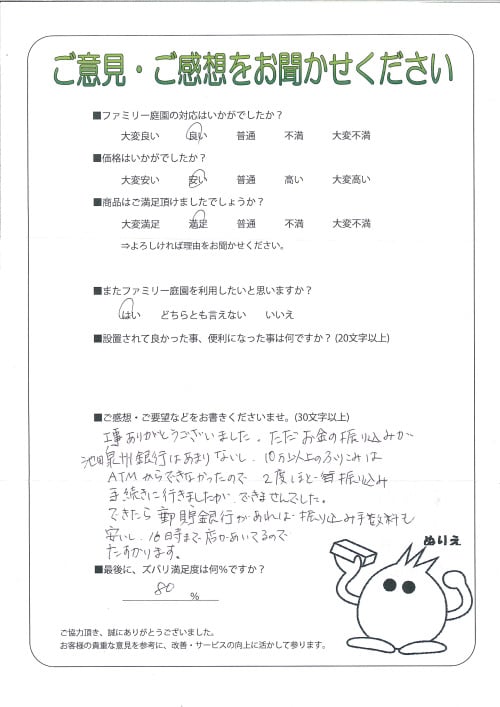 ご意見・ご感想をお聞かせください
■ファミリー庭園の対応はいかがでしたか？
大変良い 良い 普通 不満 大変不満
■価格はいかがでしたか？
大変安い 安い 普通 高い 大変高い
■商品はご満足頂けましたでしょうか？
大変満足 満足 普通 不満 大変不満
⇒よろしければ理由をお聞かせください。
■またファミリー庭園を利用したいと思いますか？
はい どちらとも言えない いいえ
■設置されて良かった事、便利になった事は何ですか？(20文字以上)
■ご感想・ご要望などをお書きくださいませ。(30文字以上)
工事ありがとうございました。ただお金の振り込みが
池田泉州銀行はあまりないし、10万以上のふりこみは
ATMからできなかったので 2度ほど 振り込み
手続きに行きましたが、できませんでした。
できたら郵貯銀行があれば振り込み手数料も
安いし、16時まで店があいてるので
たすかります。
ぬりえ
■最後に、ズバリ満足度は何%ですか？
80 %
ご協力頂き、誠にありがとうございました。
お客様の貴重な意見を参考に、改善・サービスの向上に活かして参ります。